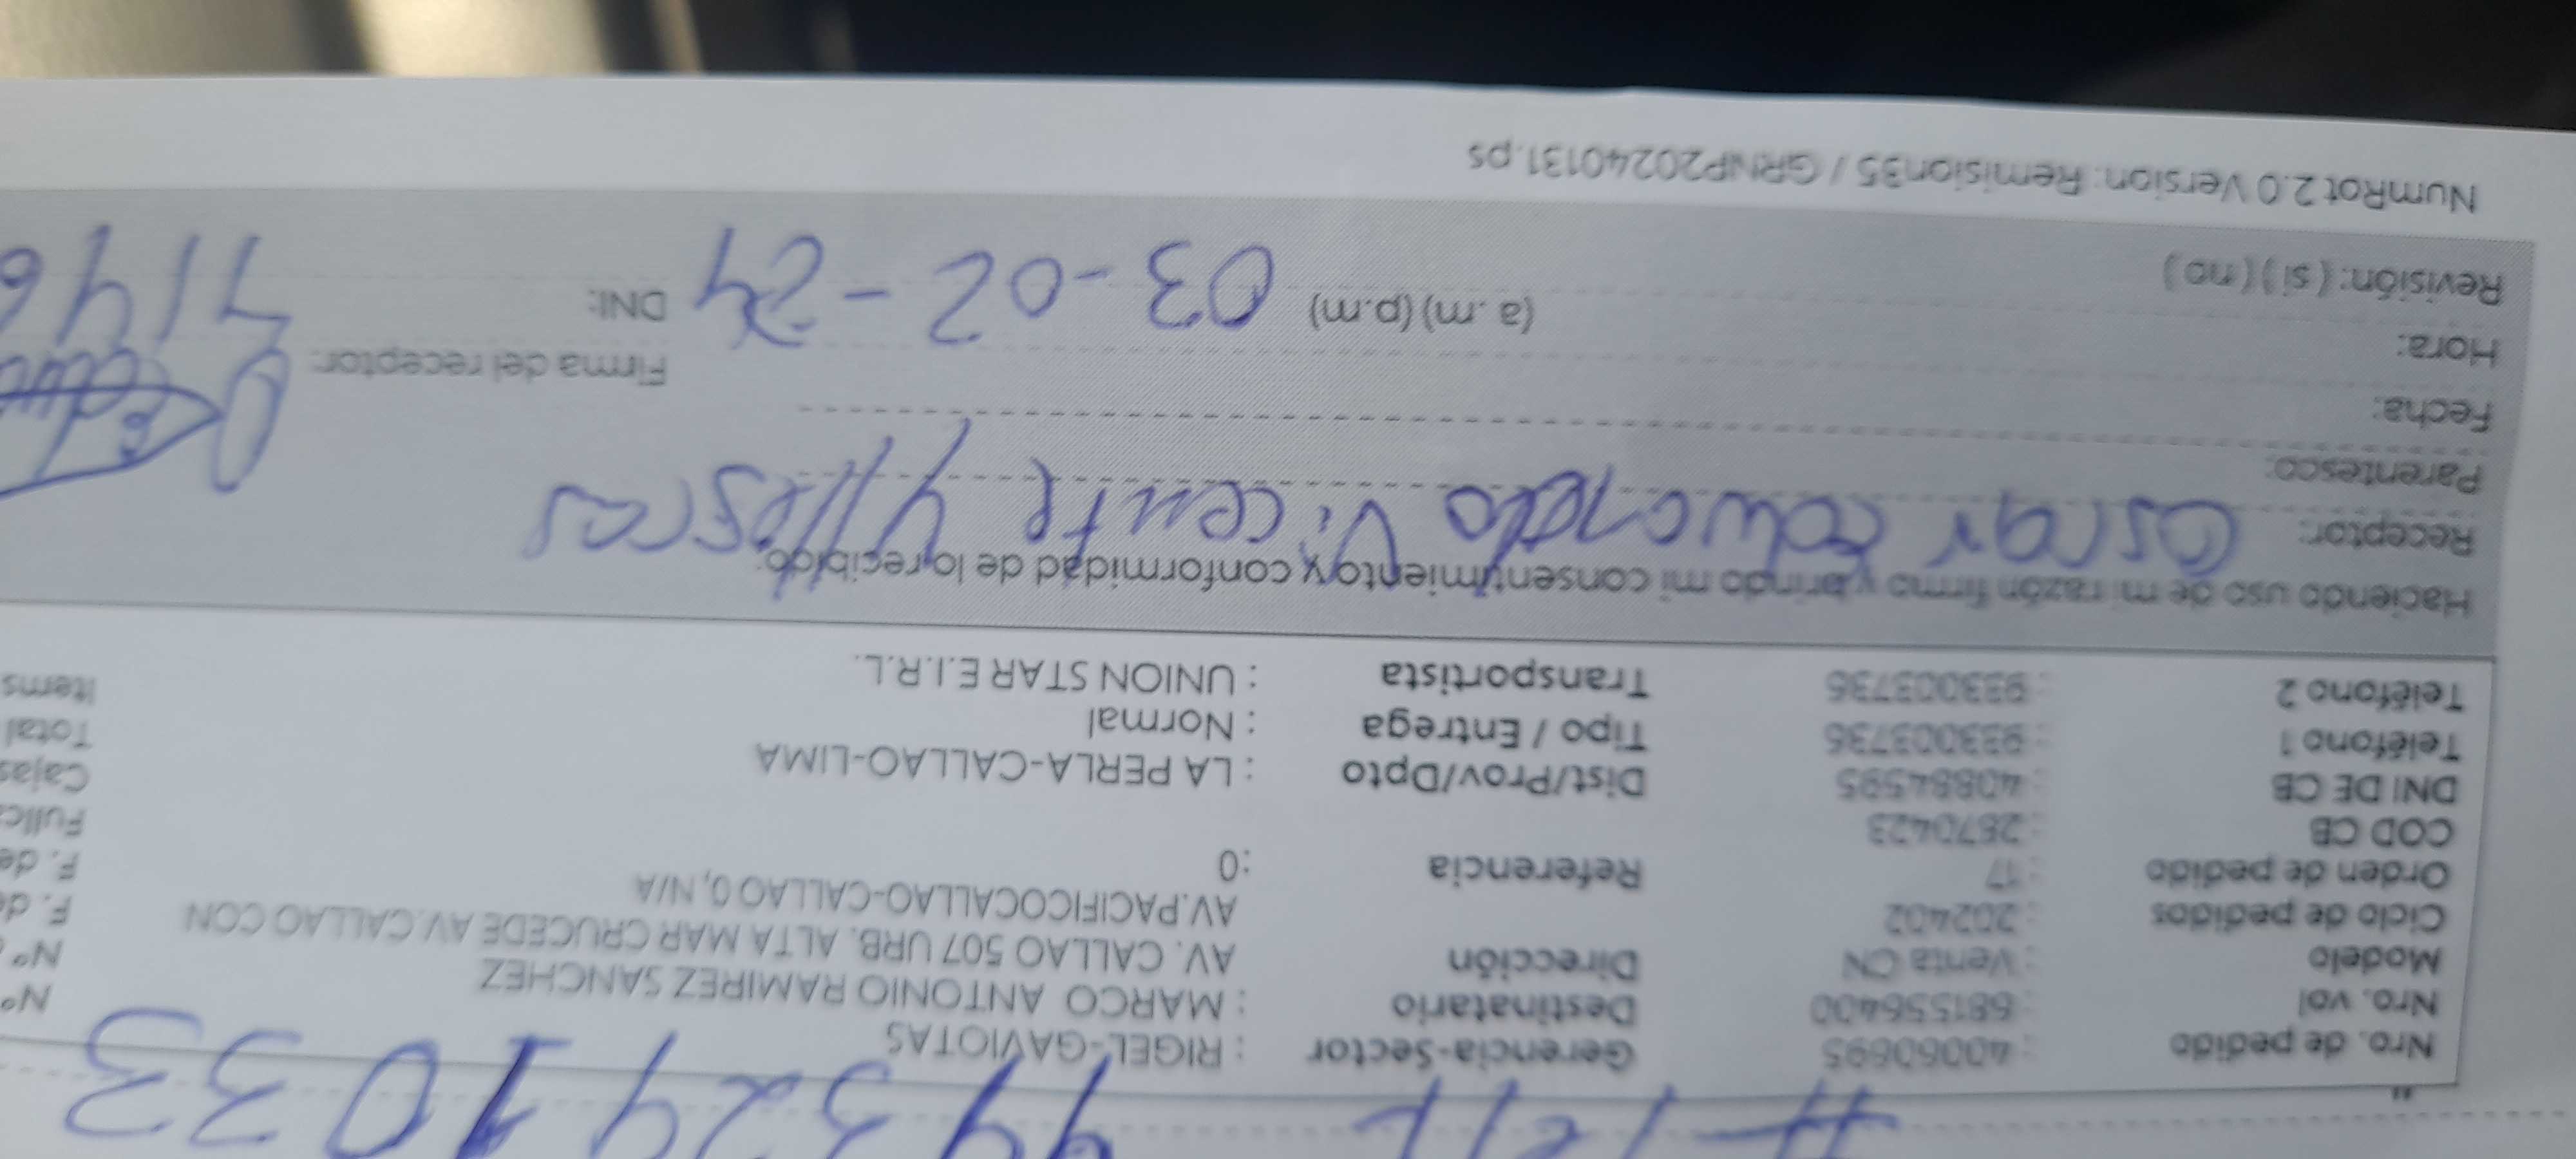 #Telf 943241033
Nro. de pedido : 40060695 Gerencia-Sector : RIGEL-GAVIOTAS Nº
Nro. vol : 681556400 Destinatario : MARCO ANTONIO RAMIREZ SANCHEZ Nº
Modelo : Venta CN Dirección AV. CALLAO 507 URB. ALTA MAR CRUCEDE AV.CALLAO CON F. de
Ciclo de pedidos : 202402 AV.PACIFICOCALLAO-CALLAO 0, N/A F. de
Orden de pedido : 17 Referencia :0
COD CB : 2870423
DNI DE CB : 40884595 Dist/Prov/Dpto : LA PERLA-CALLAO-LIMA Cajas
Teléfono 1 : 933003736 Tipo / Entrega : Normal Total
Teléfono 2 : 933003736 Transportista : UNION STAR E.I.R.L. Items
Haciendo uso de mi razón firmo y brindo mi consentimiento y conformidad de lo recibido:
Receptor: Oscar Eduardo Vicente Yllescas
Parentesco:
Fecha:
Hora: (a.m) (p.m) 03-02-24 Firma del receptor:
Revisión: ( si ) ( no ) DNI: 7146
NumRot 2.0 Version: Remision35 / GRNP20240131.ps